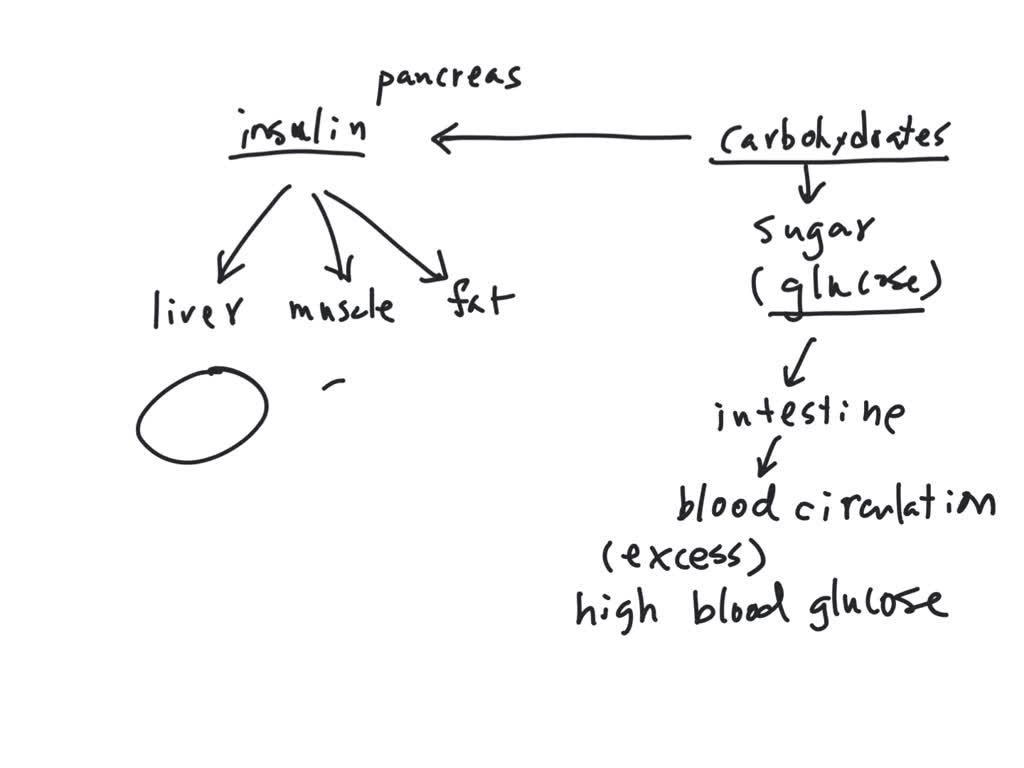 pancreas
insulin
carbohydrates
sugar
(glucose)
liver muscle fat
intestine
blood circulation
(excess)
high blood glucose